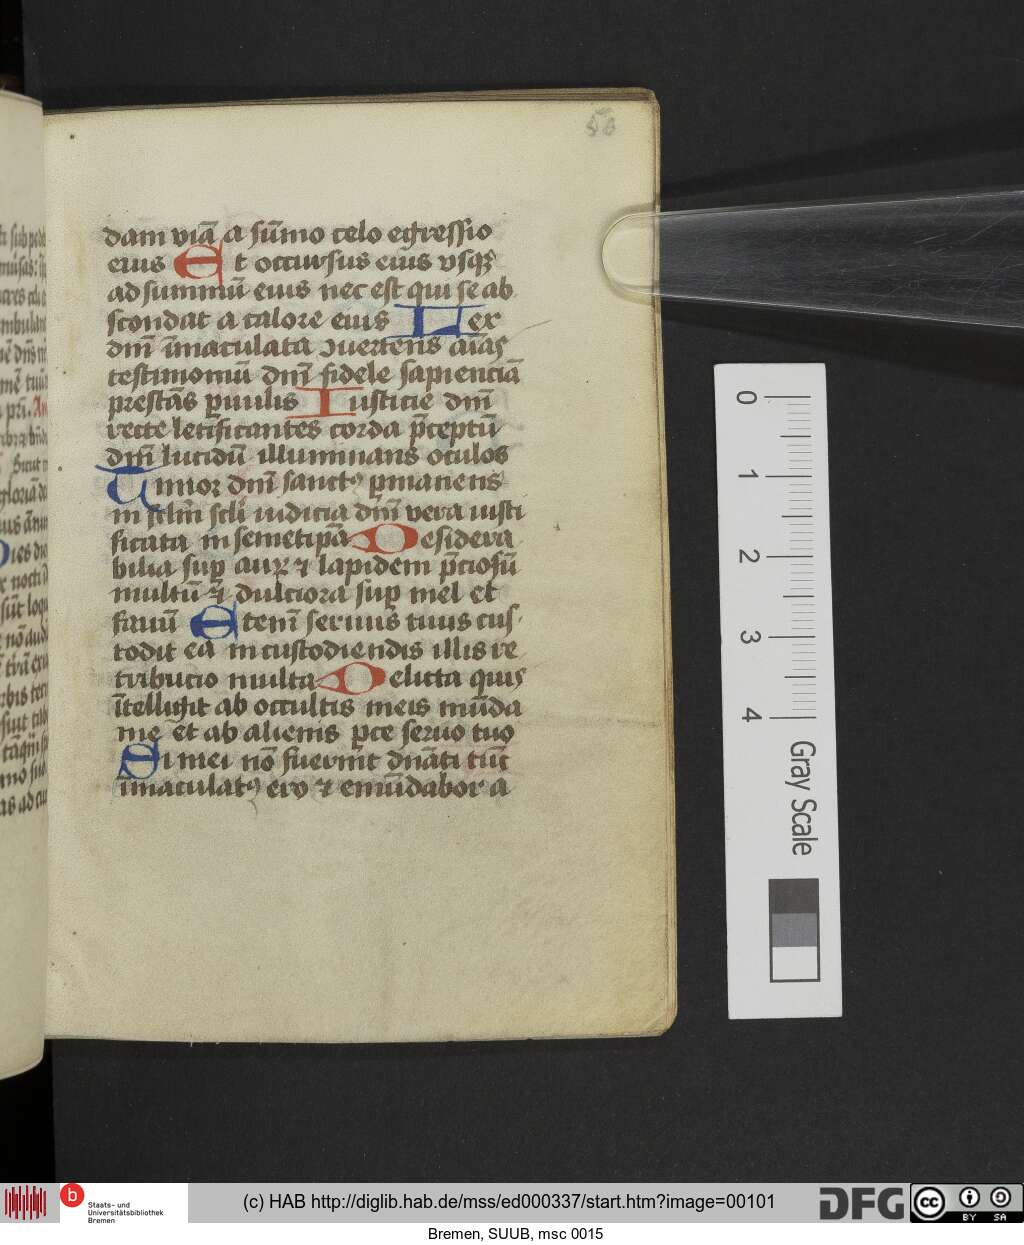 50
dam viā a sūmo celo egressio
eius Et occursus eius vsqꝫ
ad summū eius nec est qui se ab
scondat a calore eius Lex
dnī īmaculata ꝯuertens aīas
testimoniū dnī fidele sapienciā
prestās puulis Iusticie dnī
recte letificantes corda p̄ceptū
dnī lucidū illuminans oculos
Timor dnī sanctꝰ ꝑmanens
in sclm̄ scl̄i iudicia dnī vera iusti
ficata in semetip̄a Desidera
bilia suꝑ auꝝ ⁊ lapidem p̄ciosū
multū ⁊ dulciora suꝑ mel et
fauū Etenī seruus tuus cus
todit ea in custodiendis illis re
tribucio multa Delicta quis
ītelligit ab occultis meis mūda
me et ab alienis ꝑce seruo tuo
Si mei nō fuerint dnāti tūc
īmaculatꝰ ero ⁊ emūdabor a
0
1
2
3
4
Gray Scale
b
Staats- und
Universitätsbibliothek
Bremen
(c) HAB http://diglib.hab.de/mss/ed000337/start.htm?image=00101
DFG
cc
BY SA
Bremen, SUUB, msc 0015